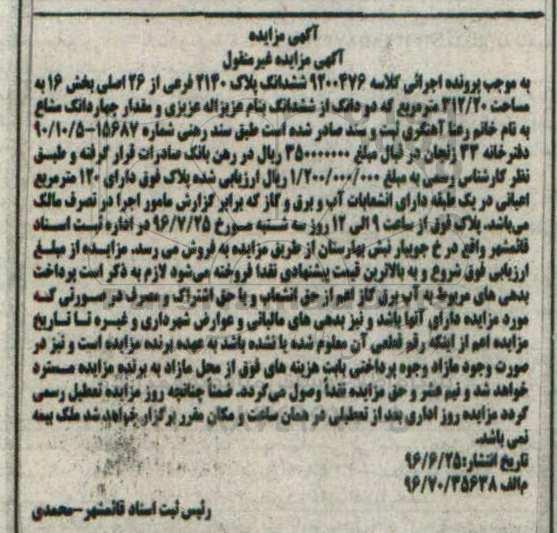 آگهی مزایده
آگهی مزایده غیرمنقول
به موجب پرونده اجرائی کلاسه ۹۲۰۰۴۷۶ ششدانگ پلاک ۲۱۴۰ فرعی از ۲۶ اصلی بخش ۱۶ به
مساحت ۳۱۲/۲۰ مترمربع که دو دانگ از ششدانگ بنام عزیزاله عزیزی و مقدار چهاردانگ مشاع
به نام خانم رعنا آهنگری ثبت و سند صادر شده است طبق سند رهنی شماره ۱۵۶۸۷-۹۰/۱۰/۵
دفترخانه ۳۳ زنجان در قبال مبلغ ۳۵۰۰۰۰۰۰۰ ریال در رهن بانک صادرات قرار گرفته و طبق
نظر کارشناس رسمی به مبلغ ۱/۲۰۰/۰۰۰/۰۰۰ ریال ارزیابی شده پلاک فوق دارای ۱۲۰ مترمربع
اعیانی در یک طبقه دارای انشعابات آب و برق و گاز که برابر گزارش مامور اجرا در تصرف مالک
می‌باشد. پلاک فوق از ساعت ۹ الی ۱۲ روز سه شنبه مورخ ۹۶/۷/۲۵ در اداره ثبت اسناد
قائمشهر واقع در خ جویبار نبش بهارستان از طریق مزایده به فروش می رسد. مزایده از مبلغ
ارزیابی فوق شروع و به بالاترین قیمت پیشنهادی نقدا فروخته می‌شود لازم به ذکر است پرداخت
بدهی های مربوط به آب برق گاز اعم از حق انشعاب و یا حق اشتراک و مصرف در صورتی که
مورد مزایده دارای آنها باشد و نیز بدهی های مالیاتی و عوارض شهرداری و غیره تا تاریخ
مزایده اعم از اینکه رقم قطعی آن معلوم شده یا نشده باشد به عهده برنده مزایده است و نیز در
صورت وجود مازاد وجوه پرداختی بابت هزینه های فوق از محل مازاد به برنده مزایده مسترد
خواهد شد و نیم عشر و حق مزایده نقداً وصول می‌گردد. ضمنا چنانچه روز مزایده تعطیل رسمی
گردد مزایده روز اداری بعد از تعطیلی در همان ساعت و مکان مقرر برگزار خواهد شد ملک بیمه
نمی باشد.
تاریخ انتشار: ۹۶/۶/۲۵
م‌الف ۹۶/۷۰/۳۵۶۳۸
رئیس ثبت اسناد قائمشهر-محمدی